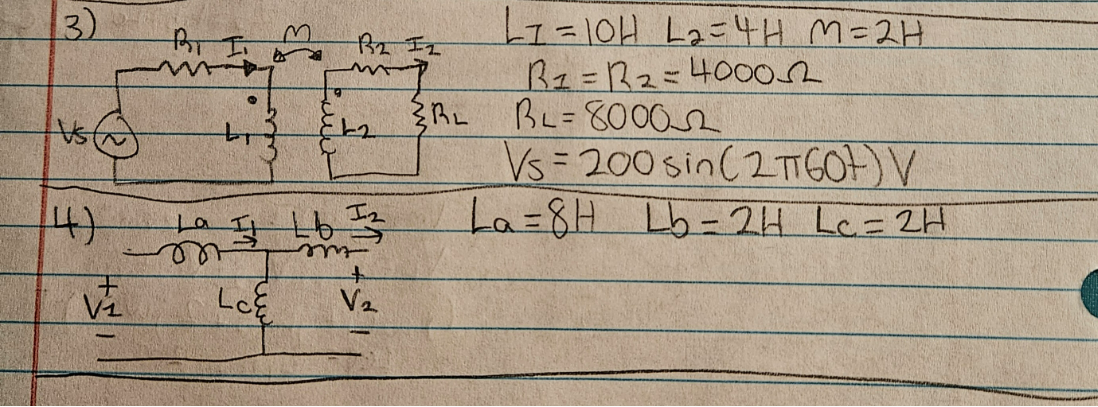 3)
R1 I1 M R2 I2
Vs L1 L2 RL
L1 = 10H L2 = 4H M = 2H
R1 = R2 = 4000Ω
RL = 8000Ω
Vs = 200 sin(2π60t) V
4)
La I1 Lb I2
+ V1 - Lc + V2 -
La = 8H Lb = 2H Lc = 2H